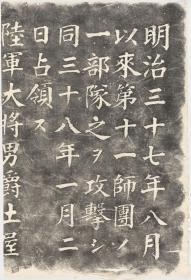 明治三十七年八月
以來第十一師團ノ
一部隊之ヲ攻擊シ
同三十八年一月二
日占領ス
陸軍大將男爵土屋